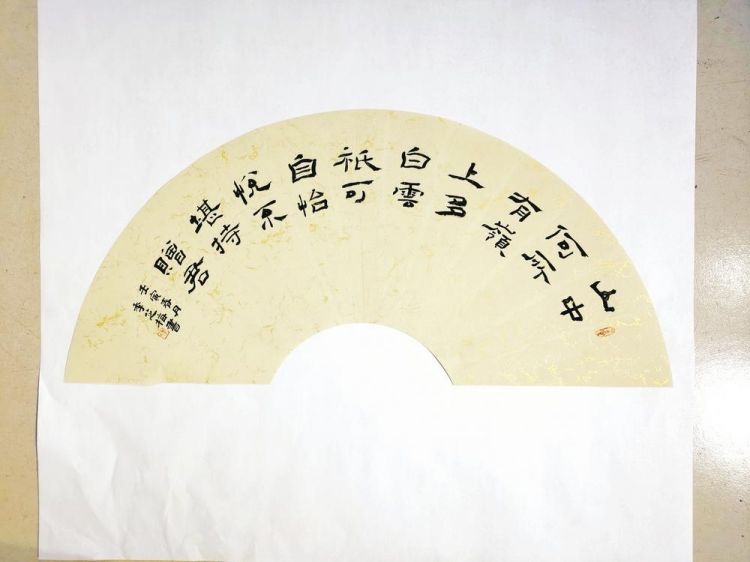 山中
何所
有嶺
上多
白雲
祇可
自怡
悅不
堪持
贈君
壬寅春月
李書